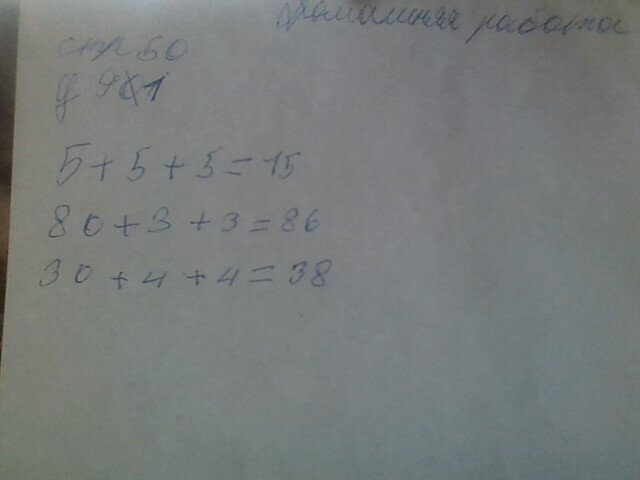 Домашняя работа
стр 50
у 1
5+5+5=15
80+3+3=86
30+4+4=38